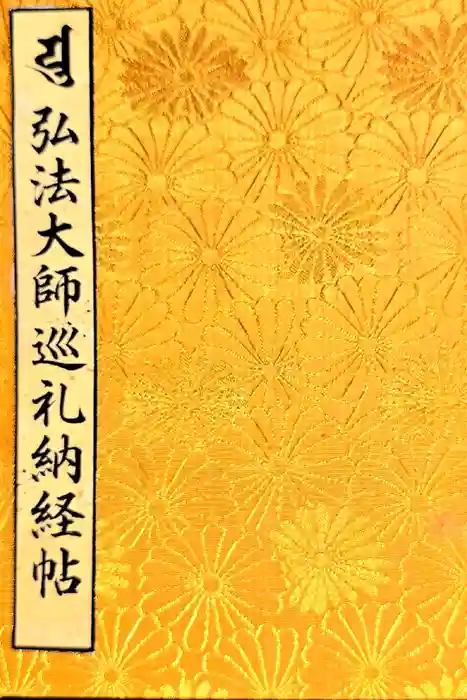 𑖧𑖲 弘法大師巡礼納経帖